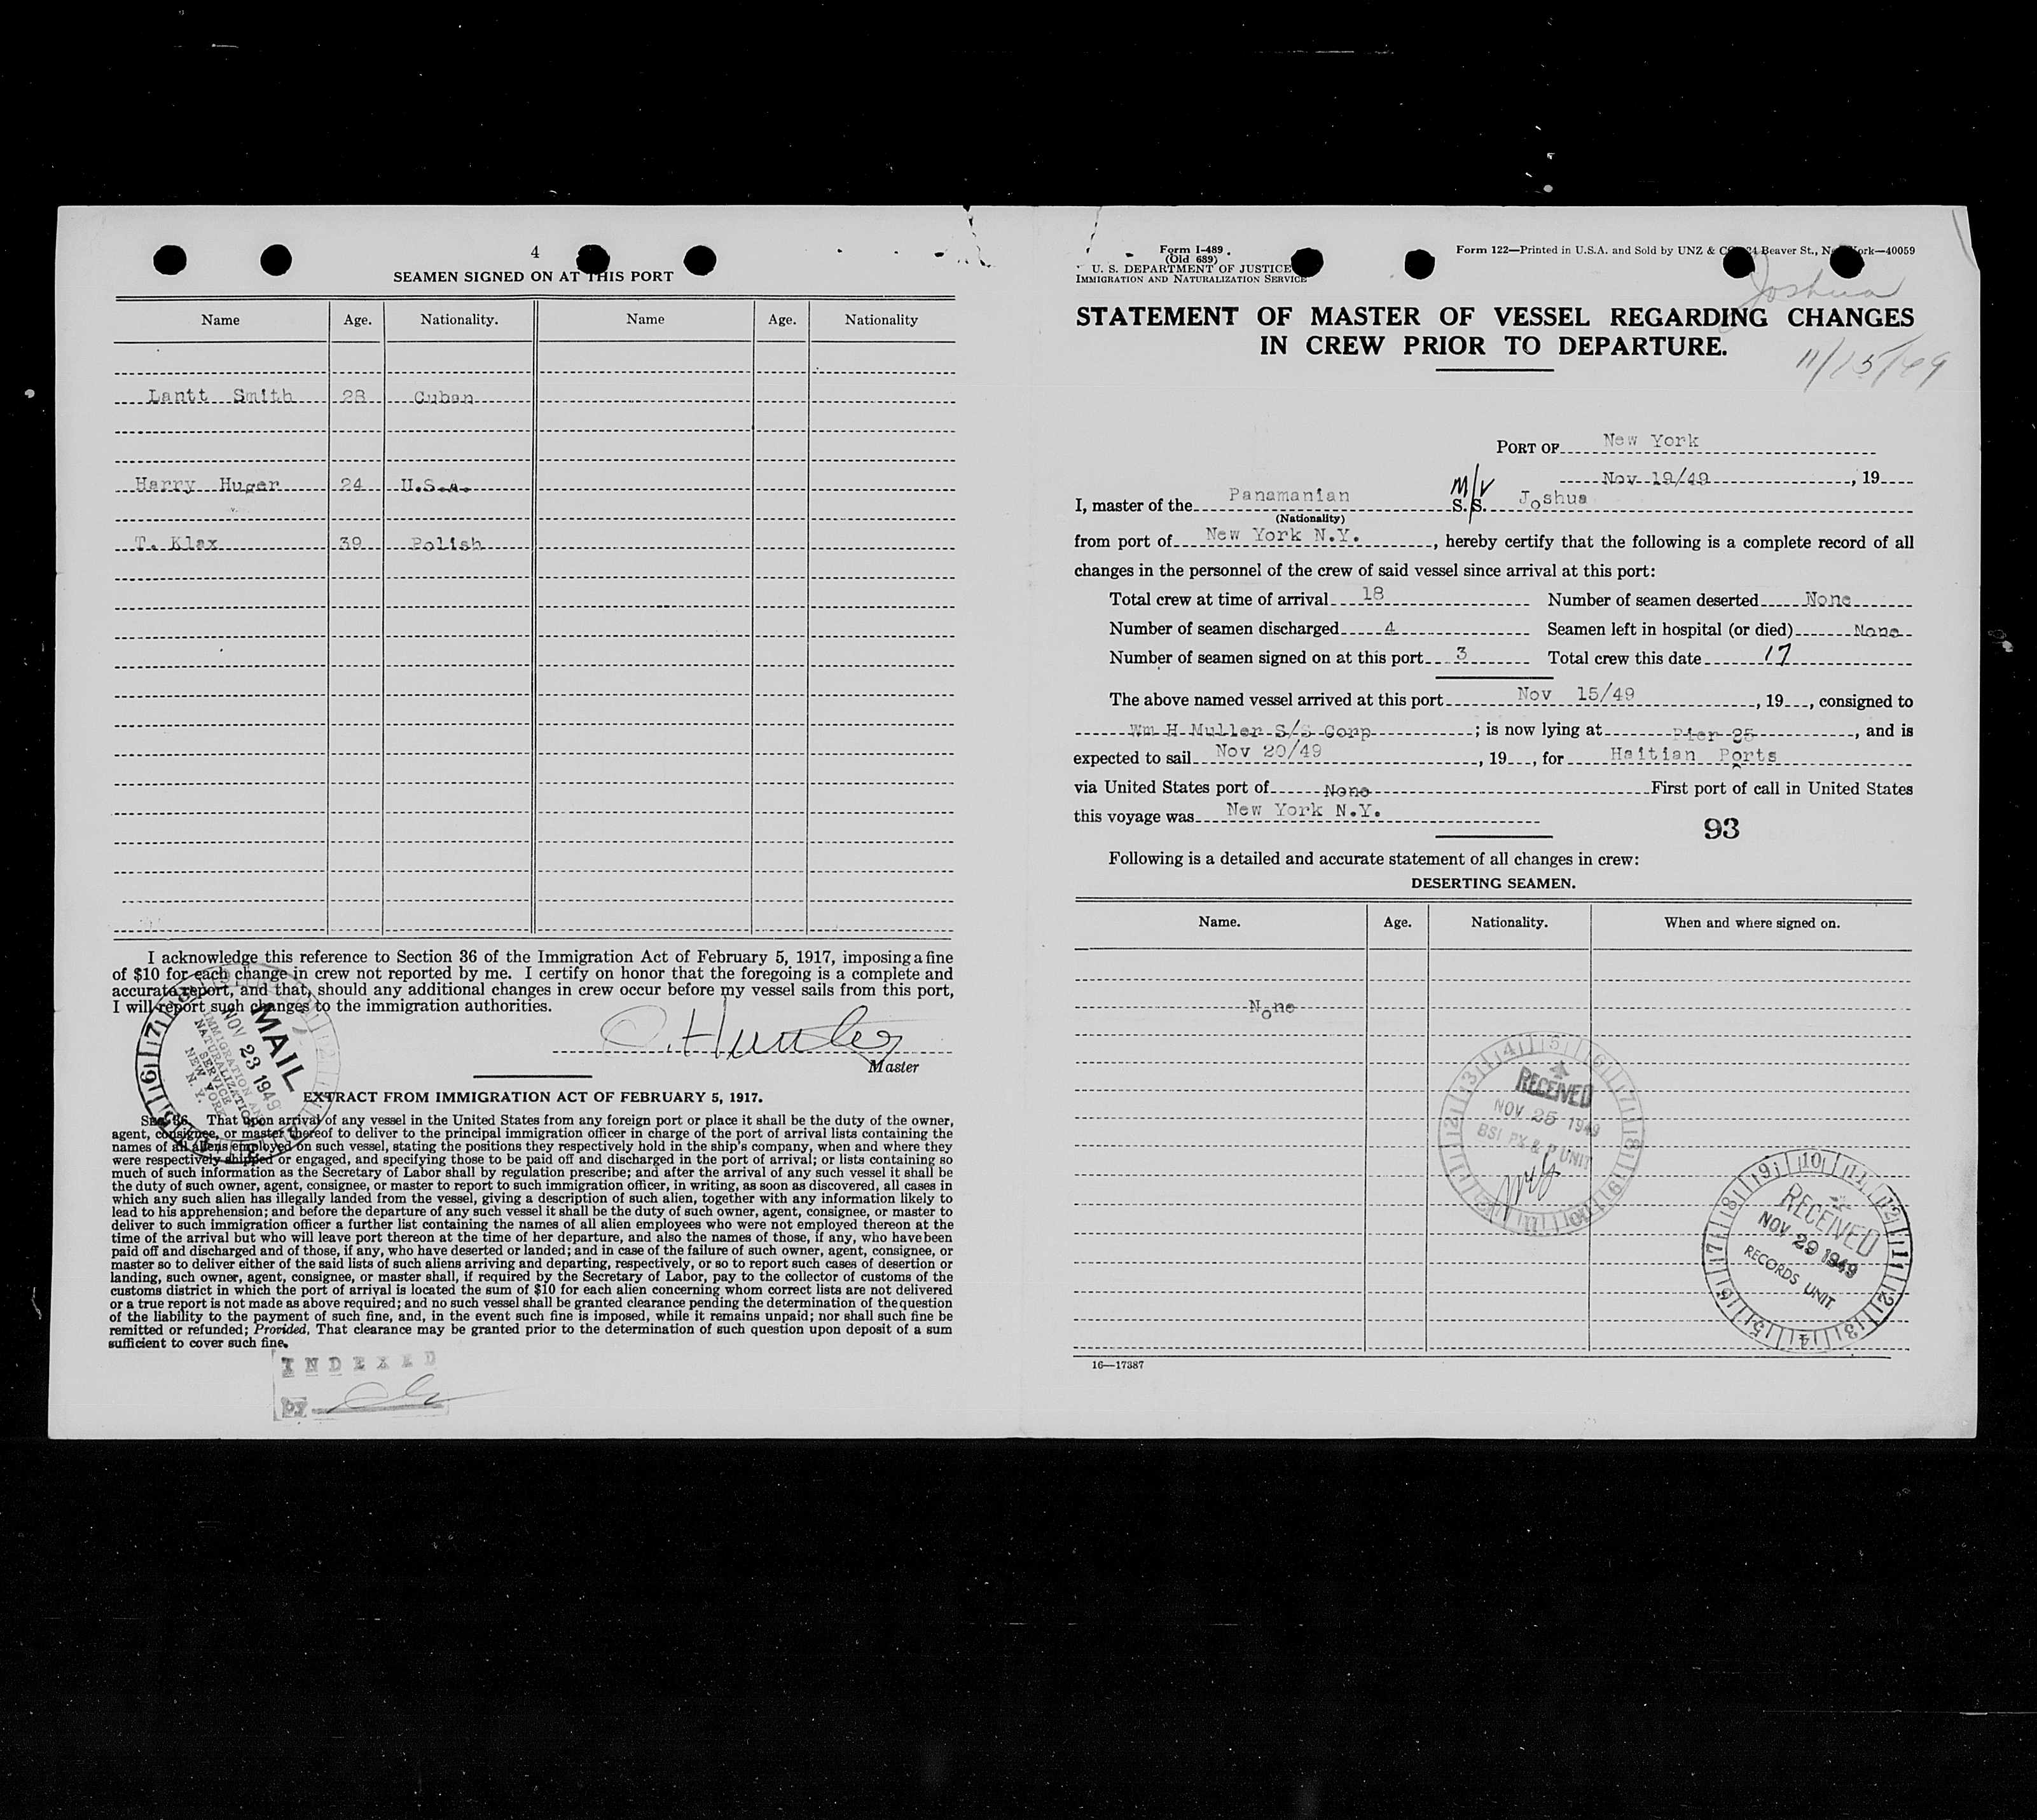 4
SEAMEN SIGNED ON AT THIS PORT
Name Age. Nationality. Name Age. Nationality
Lantt Smith 28 Cuban
Harry Huger 24 U.S.A.
T. Klax 39 Polish
I acknowledge this reference to Section 36 of the Immigration Act of February 5, 1917, imposing a fine
of $10 for each change in crew not reported by me. I certify on honor that the foregoing is a complete and
accurate report, and that, should any additional changes in crew occur before my vessel sails from this port,
I will report such changes to the immigration authorities.
Master
MAIL
NOV 23 1949
IMMIGRATION AND
NATURALIZATION
SERVICE
NEW YORK
N. Y.
EXTRACT FROM IMMIGRATION ACT OF FEBRUARY 5, 1917.
SEC. 36. That upon arrival of any vessel in the United States from any foreign port or place it shall be the duty of the owner,
agent, consignee, or master thereof to deliver to the principal immigration officer in charge of the port of arrival lists containing the
names of all aliens employed on such vessel, stating the positions they respectively hold in the ship's company, when and where they
were respectively shipped or engaged, and specifying those to be paid off and discharged in the port of arrival; or lists containing so
much of such information as the Secretary of Labor shall by regulation prescribe; and after the arrival of any such vessel it shall be
the duty of such owner, agent, consignee, or master to report to such immigration officer, in writing, as soon as discovered, all cases in
which any such alien has illegally landed from the vessel, giving a description of such alien, together with any information likely to
lead to his apprehension; and before the departure of any such vessel it shall be the duty of such owner, agent, consignee, or master to
deliver to such immigration officer a further list containing the names of all alien employees who were not employed thereon at the
time of the arrival but who will leave port thereon at the time of her departure, and also the names of those, if any, who have been
paid off and discharged and of those, if any, who have deserted or landed; and in case of the failure of such owner, agent, consignee, or
master so to deliver either of the said lists of such aliens arriving and departing, respectively, or so to report such cases of desertion or
landing, such owner, agent, consignee, or master shall, if required by the Secretary of Labor, pay to the collector of customs of the
customs district in which the port of arrival is located the sum of $10 for each alien concerning whom correct lists are not delivered
or a true report is not made as above required; and no such vessel shall be granted clearance pending the determination of the question
of the liability to the payment of such fine, and, in the event such fine is imposed, while it remains unpaid; nor shall such fine be
remitted or refunded; Provided, That clearance may be granted prior to the determination of such question upon deposit of a sum
sufficient to cover such fine.
INDEXED
by
Form I-489
(Old 689)
U. S. DEPARTMENT OF JUSTICE
IMMIGRATION AND NATURALIZATION SERVICE
Form 122—Printed in U.S.A. and Sold by UNZ & Beaver St., 40059
Joshua
STATEMENT OF MASTER OF VESSEL REGARDING CHANGES
IN CREW PRIOR TO DEPARTURE.
11/15/49
PORT OF New York
Nov 19/49, 19
I, master of the Panamanian S.S. M/V Joshua
(Nationality)
from port of New York N.Y., hereby certify that the following is a complete record of all
changes in the personnel of the crew of said vessel since arrival at this port:
Total crew at time of arrival 18 Number of seamen deserted None
Number of seamen discharged 4 Seamen left in hospital (or died) None
Number of seamen signed on at this port 3 Total crew this date 17
The above named vessel arrived at this port Nov 15/49, 19, consigned to
Wm H Muller S/S Corp; is now lying at Pier 25, and is
expected to sail Nov 20/49, 19, for Haitian Ports
via United States port of None First port of call in United States
this voyage was New York N.Y.
93
Following is a detailed and accurate statement of all changes in crew:
DESERTING SEAMEN.
Name. Age. Nationality. When and where signed on.
None
RECEIVED
NOV 25 1949
BSI PX & P UNIT
RECEIVED
NOV 29 1949
RECORDS UNIT
16—17387